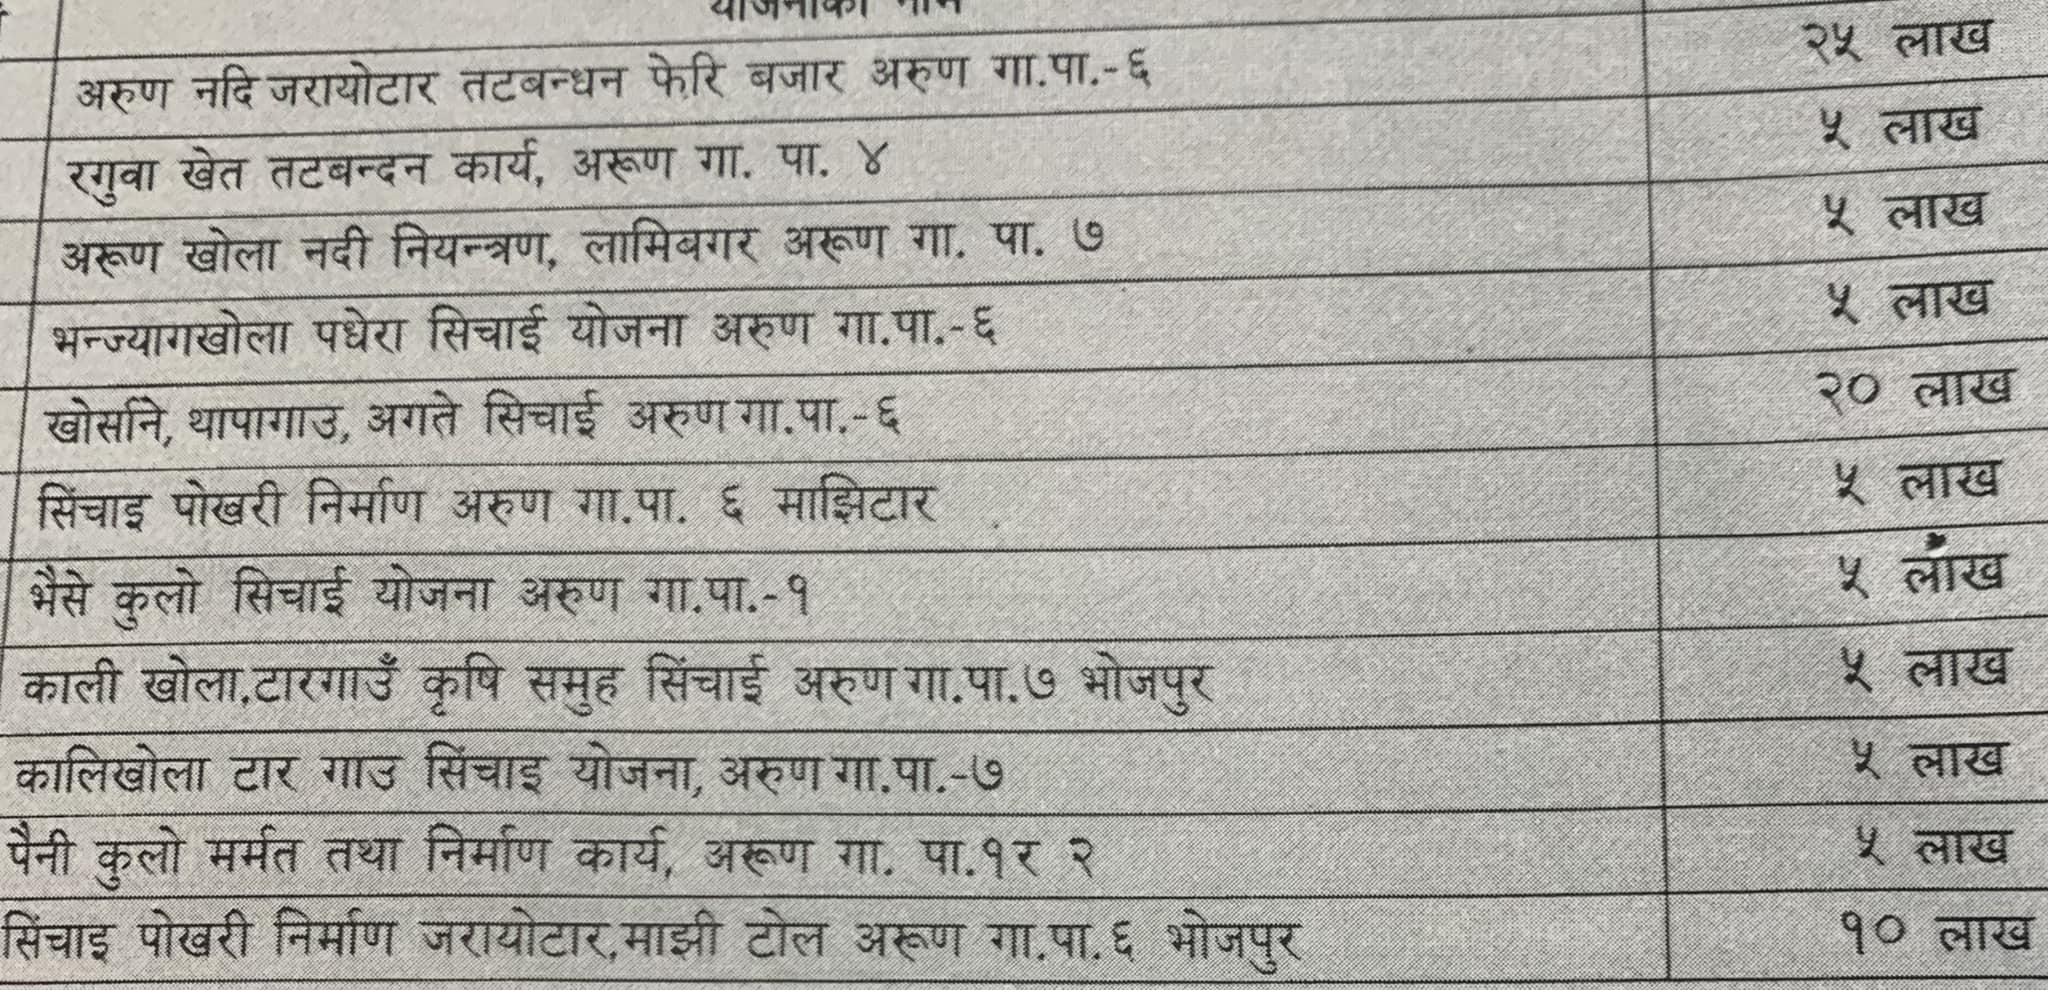 योजनाको नाम
अरुण नदि जरायोटार तटबन्धन फेरि बजार अरुण गा.पा.-६ २५ लाख
रगुवा खेत तटबन्दन कार्य, अरूण गा. पा. ४ ५ लाख
अरूण खोला नदी नियन्त्रण, लामिबगर अरूण गा. पा. ७ ५ लाख
भन्ज्यागखोला पधेरा सिचाई योजना अरुण गा.पा.-६ ५ लाख
खोर्साने, थापागाउ, अगते सिचाई अरुण गा.पा.-६ २० लाख
सिंचाइ पोखरी निर्माण अरुण गा.पा. ६ माझिटार ५ लाख
भैसे कुलो सिचाई योजना अरुण गा.पा.-१ ५ लाख
काली खोला,टारगाउँ कृषि समुह सिंचाई अरुण गा.पा.७ भोजपुर ५ लाख
कालिखोला टार गाउ सिंचाइ योजना, अरुण गा.पा.-७ ५ लाख
पैनी कुलो मर्मत तथा निर्माण कार्य, अरूण गा. पा.१र २ ५ लाख
सिंचाइ पोखरी निर्माण जरायोटार,माझी टोल अरूण गा.पा.६ भोजपुर १० लाख